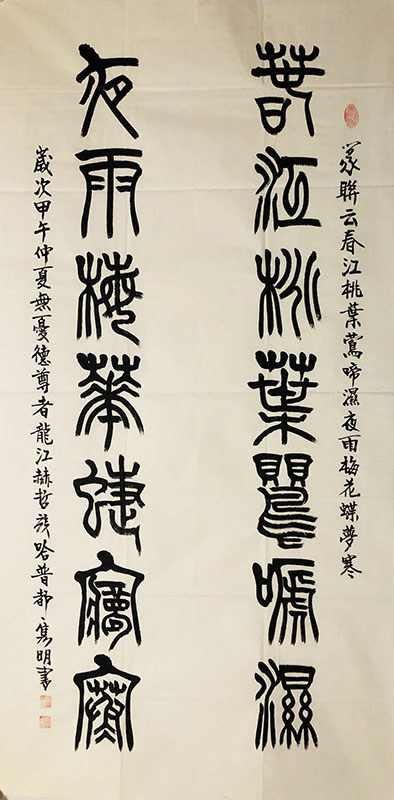 篆联云春江桃葉鶯啼濕夜雨梅花蝶夢寒
春江桃葉鶯嗁濕
夜雨梅華蝶夢寒
歲次甲午仲夏無憂德尊者龍江赫哲族哈普都·隽明書